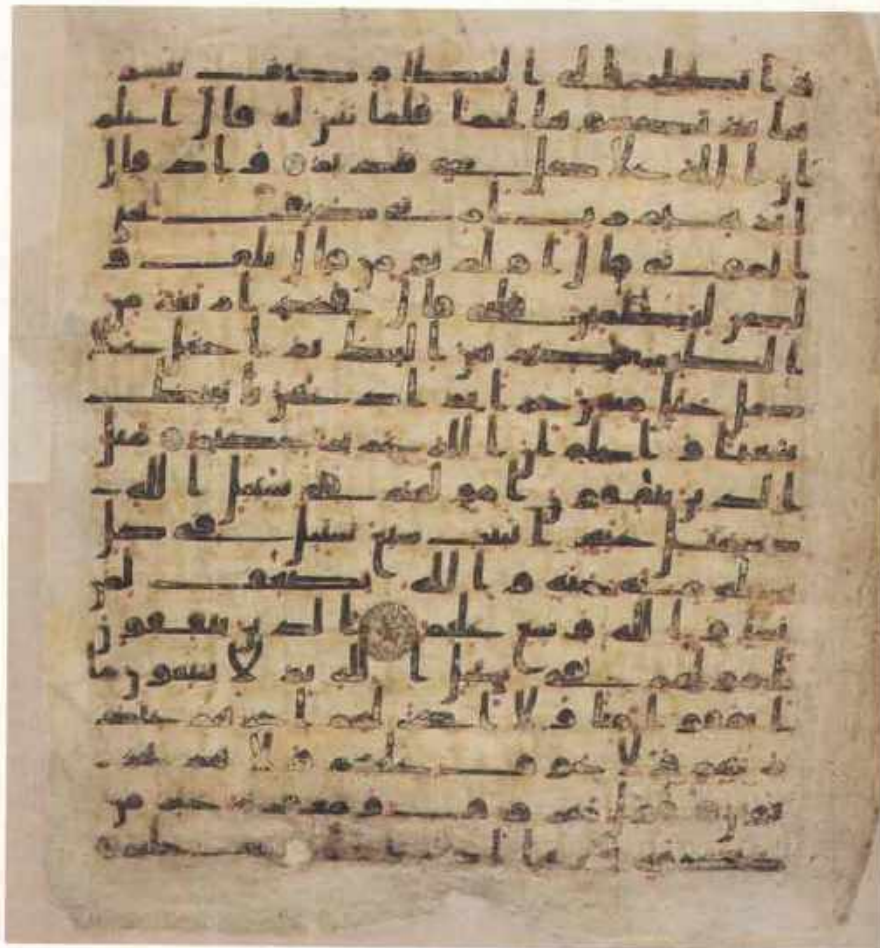 و انظر الى العظام كيف ننشز
ها ثم نكسوها لحما فلما تبين له قال اعلم
ان الله على كل شى قدير و اذ قال
ابرهيم رب ارنى كيف تحى
الموتى قال اولم تومن قال بلى و
لكن ليطمئن قلبى قال فخذ اربعة من
الطير فصرهن اليك ثم اجعل على
كل جبل منهن جزا ثم ادعهن ياتينك
سعيا و اعلم ان الله عزيز حكيم مثل
الذين ينفقون امولهم فى سبيل الله
كمثل حبة انبتت سبع سنابل فى كل
سنبلة مائة حبة و الله يضعف لمن
يشا و الله وسع عليم الذين ينفقون
امولهم فى سبيل الله ثم لا يتبعون ما
انفقوا منا و لا اذى لهم اجرهم عند
ربهم و لا خوف عليهم و لا هم يحز
نون قول معروف و مغفرة خير من
صدقة يتبعها اذى و الله غنى حليم